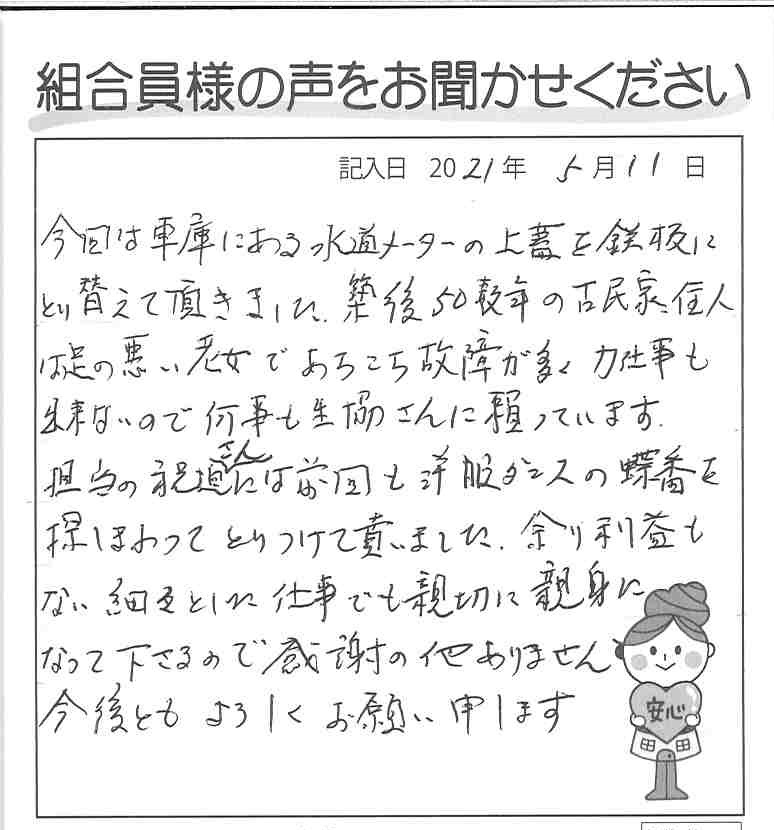 組合員様の声をお聞かせください
記入日 2021年 5月11日
今回は車庫にある水道メーターの上蓋を鉄板に
とり替えて頂きました。築後50数年の古民家、住人
は足の悪い老女であちこち故障が多く力仕事も
出来ないので何事も生協さんに頼っています。
担当の祝迫さんには前回も洋服ダンスの蝶番を
探しまわってとりつけて貰いました。余り利益も
ない細々とした仕事でも親切に親身に
なって下さるので感謝の他ありません
今後ともよろしくお願い申します
安心